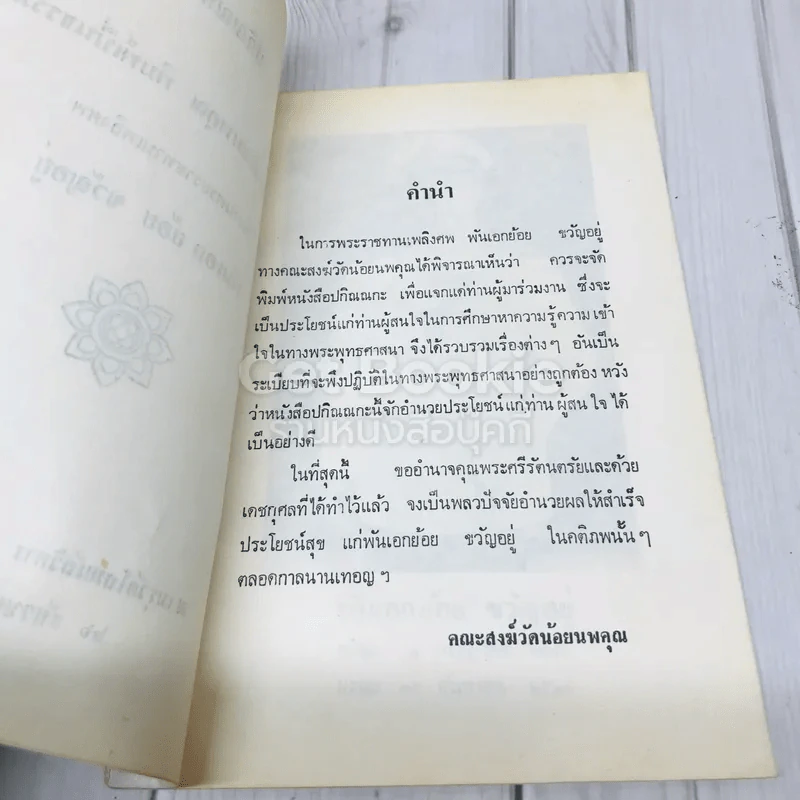 คำนำ
ในการพระราชทานเพลิงศพ พันเอกย้อย ขวัญอยู่
ทางคณะสงฆ์วัดน้อยนพคุณได้พิจารณาเห็นว่า ควรจะจัด
พิมพ์หนังสือปกิณณกะ เพื่อแจกแด่ท่านผู้มาร่วมงาน ซึ่งจะ
เป็นประโยชน์แก่ท่านผู้สนใจในการศึกษาหาความรู้ความเข้า
ใจในทางพระพุทธศาสนา จึงได้รวบรวมเรื่องต่างๆ อันเป็น
ระเบียบที่จะพึงปฏิบัติในทางพระพุทธศาสนาอย่างถูกต้อง หวัง
ว่าหนังสือปกิณณกะนี้จักอำนวยประโยชน์แก่ท่านผู้สนใจได้
เป็นอย่างดี
ในที่สุดนี้ ขออำนาจคุณพระศรีรัตนตรัยและด้วย
เดชกุศลที่ได้ทำไว้แล้ว จงเป็นพลวปัจจัยอำนวยผลให้สำเร็จ
ประโยชน์สุข แก่พันเอกย้อย ขวัญอยู่ ในคติภพนั้นๆ
ตลอดกาลนานเทอญฯ
คณะสงฆ์วัดน้อยนพคุณ
Get Bookie
ร้านหนังสือบุคกี้